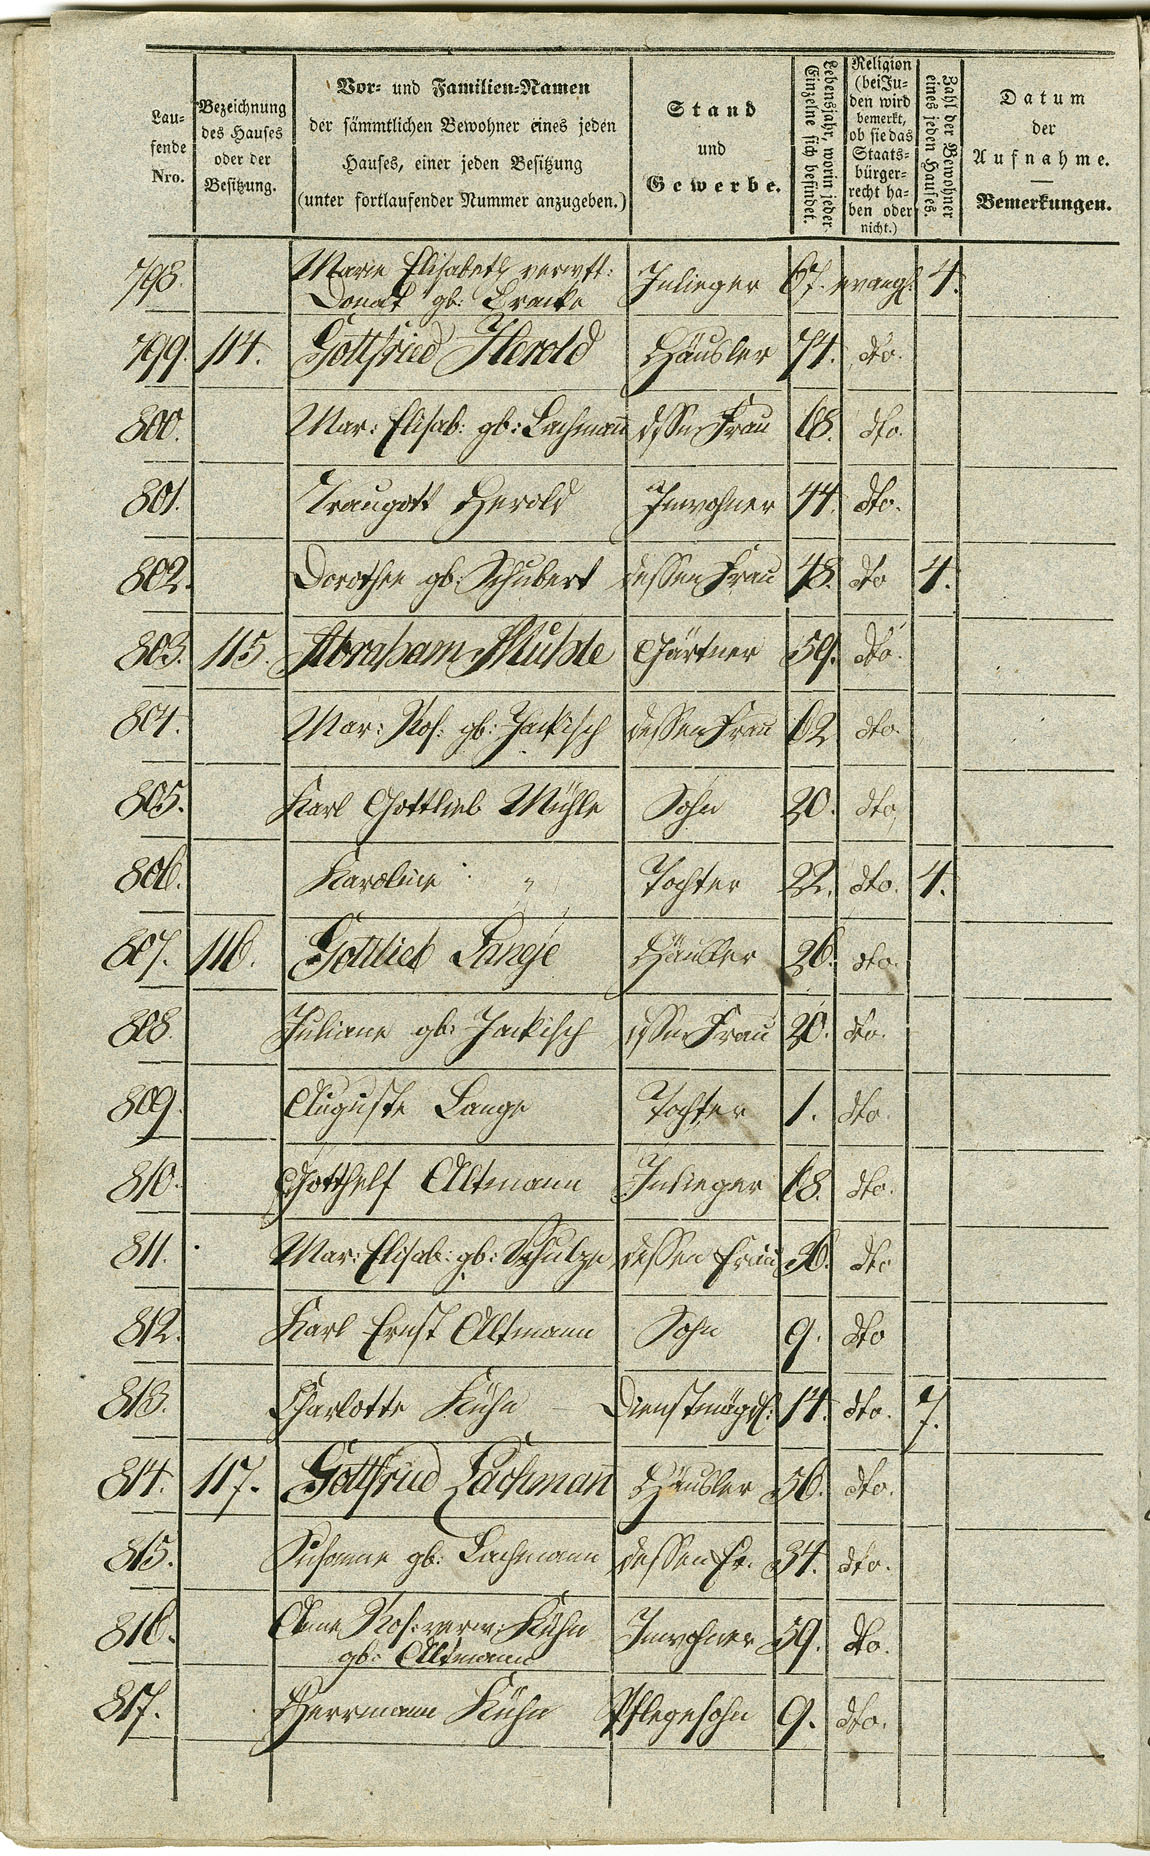 Laufende Nro. | Bezeichnung des Hauses oder der Besitzung. | Vor- und Familien-Namen der sämmtlichen Bewohner eines jeden Hauses, einer jeden Besitzung (unter fortlaufender Nummer anzugeben.) | Stand und Gewerbe. | Lebensjahr, worin jeder Einzelne sich befindet. | Religion (bei Juden wird bemerkt, ob sie das Staatsbürgerrecht haben oder nicht.) | Zahl der Bewohner eines jeden Hauses. | Datum der Aufnahme. — Bemerkungen.
798. Marie Elisabeth verwitt: Inlieger 67. evangl. 4.
Donat gb: Bracke
799. 114. Gottfried Herold Häusler 74. dto.
800. Mar: Elisab: gb: Lachmann dssn Frau 68. dto.
801. Traugott Herold Inwohner 44. dto.
802. Dorothee gb: Schubert dessen Frau 48. dto 4.
803. 115. Abraham Mühle Gärtner 59. dto.
804. Mar: Ros: gb: Jackisch dessen Frau 62 dto.
805. Karl Gottlieb Mühle Sohn 20. dto,
806. Karoline " Tochter 22. dto. 4.
807. 116. Gottlieb Lange Häusler 26. dto.
808. Juliane gb: Jackisch dssn Frau 20. dto.
809. Auguste Lange Tochter 1. dto.
810. Gotthelf Altmann Inlieger 68. dto.
811. Mar: Elisab: gb: Schulze dessen Frau 36. dto
812. Karl Ernst Altmann Sohn 9. dto
813. Charlotte Kühn — Dienstmägd: 14. dto. 7.
814. 117. Gottfried Lachmann Häusler 56. dto.
815. Susanne gb: Lachmann dessen Fr. 34. dto.
816. Anne Ros: verw: Kühn Inwohner 59. dto.
gb: Altmann
817. Herrmann Kühn Pflegesohn 9. dto.